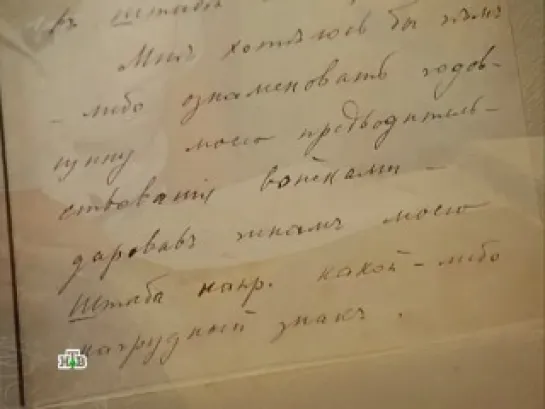 въ Штабъ
Мнѣ хотѣлось бы чѣмъ
-либо ознаменовать годов-
щину моего предводитель-
ствованія войсками -
даровавъ чинамъ моего
Штаба напр. какой-либо
нагрудный знакъ.
НТВ